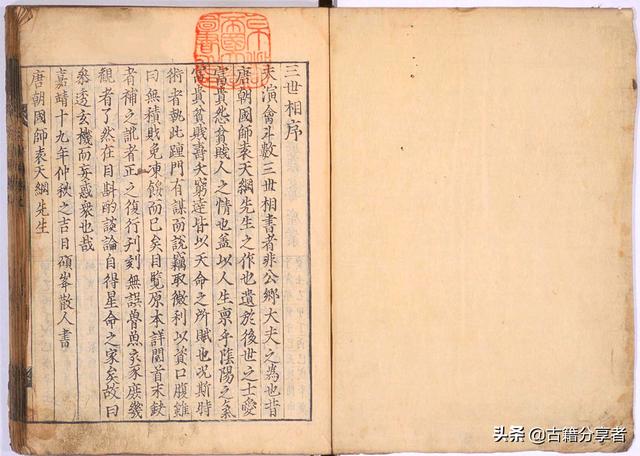 三世相序
夫演禽斗數三世相書者非公卿大夫之為也昔
唐朝國師袁天綱先生之作也遺於後世之士愛
富貴怨貧賤人之情也蓋以人生稟乎陰陽之氣
富貴貧賤壽夭窮達皆以天命之所賦也况斯時
術者執此踵門有謀而說竊取微利以資口腹雖
曰無積賍免凍餒而已矣目覽原本詳閱首末鈌
者補之訛者正之復行刋刻無誤魯魚亥豕庶幾
觀者了然在目斟酌談論自得星命之家矣故曰
叅透玄機而妄惑衆也哉
嘉靖十九年仲秋之吉日碩峯散人書
唐朝國師袁天綱先生
头条 @古籍分享者